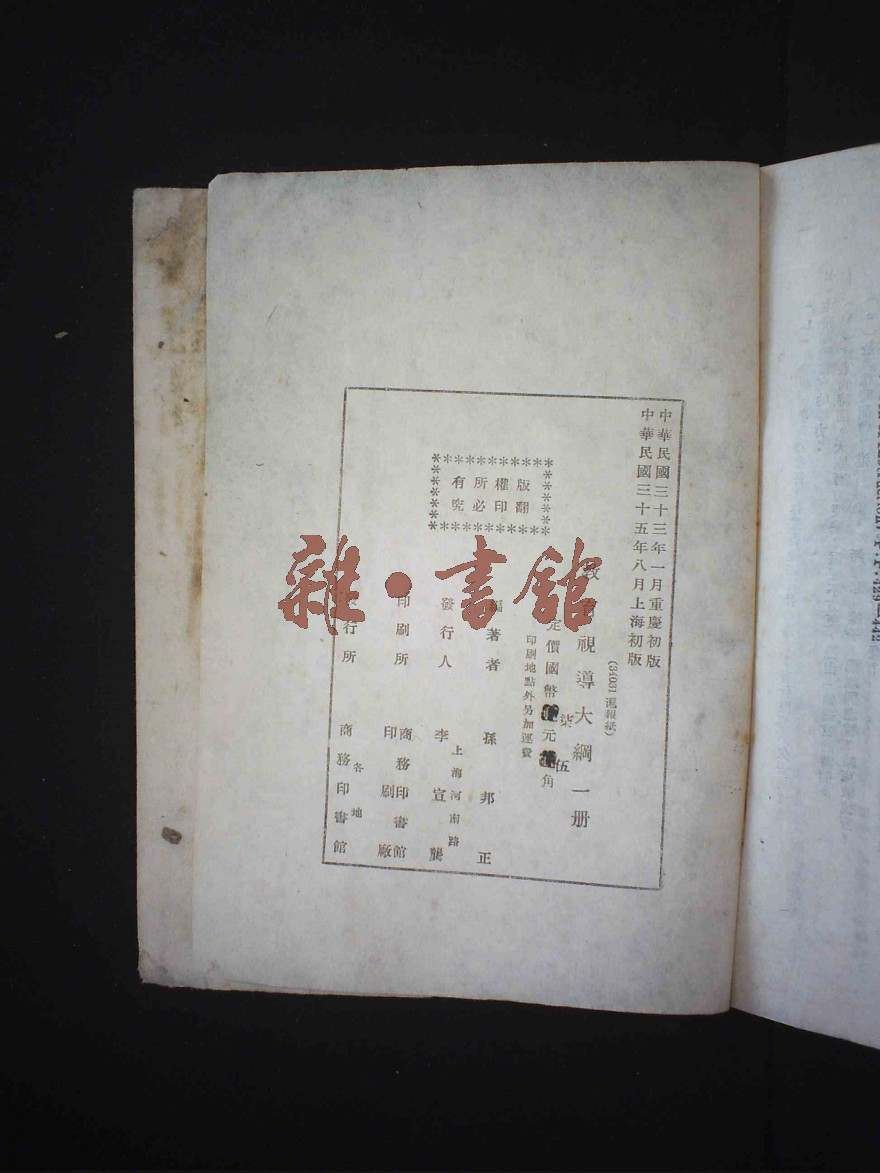 中華民國三十三年一月重慶初版
中華民國三十五年八月上海初版
(34031 滬報紙)
教育視導大綱一册
定價國幣柒元伍角
印刷地點外另加運費
版權所有
翻印必究
編著者 孫邦正
發行人 李宣龔
上海河南路
印刷所 商務印書館
印刷廠
發行所 商務印書館
各地
雜·書館